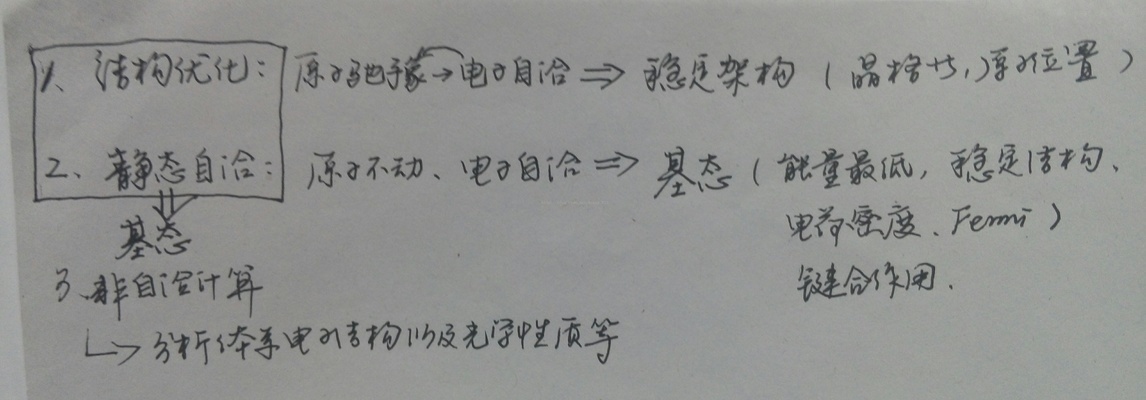 1、结构优化：原子弛豫→电子自洽⇒稳定架构（晶格大小,原子位置）
2、静态自洽：原子不动、电子自洽⇒基态（能量最低，稳定结构、
电荷密度、Fermi）
基态
键合作用.
3、非自洽计算
↳分析体系电子结构以及光学性质等